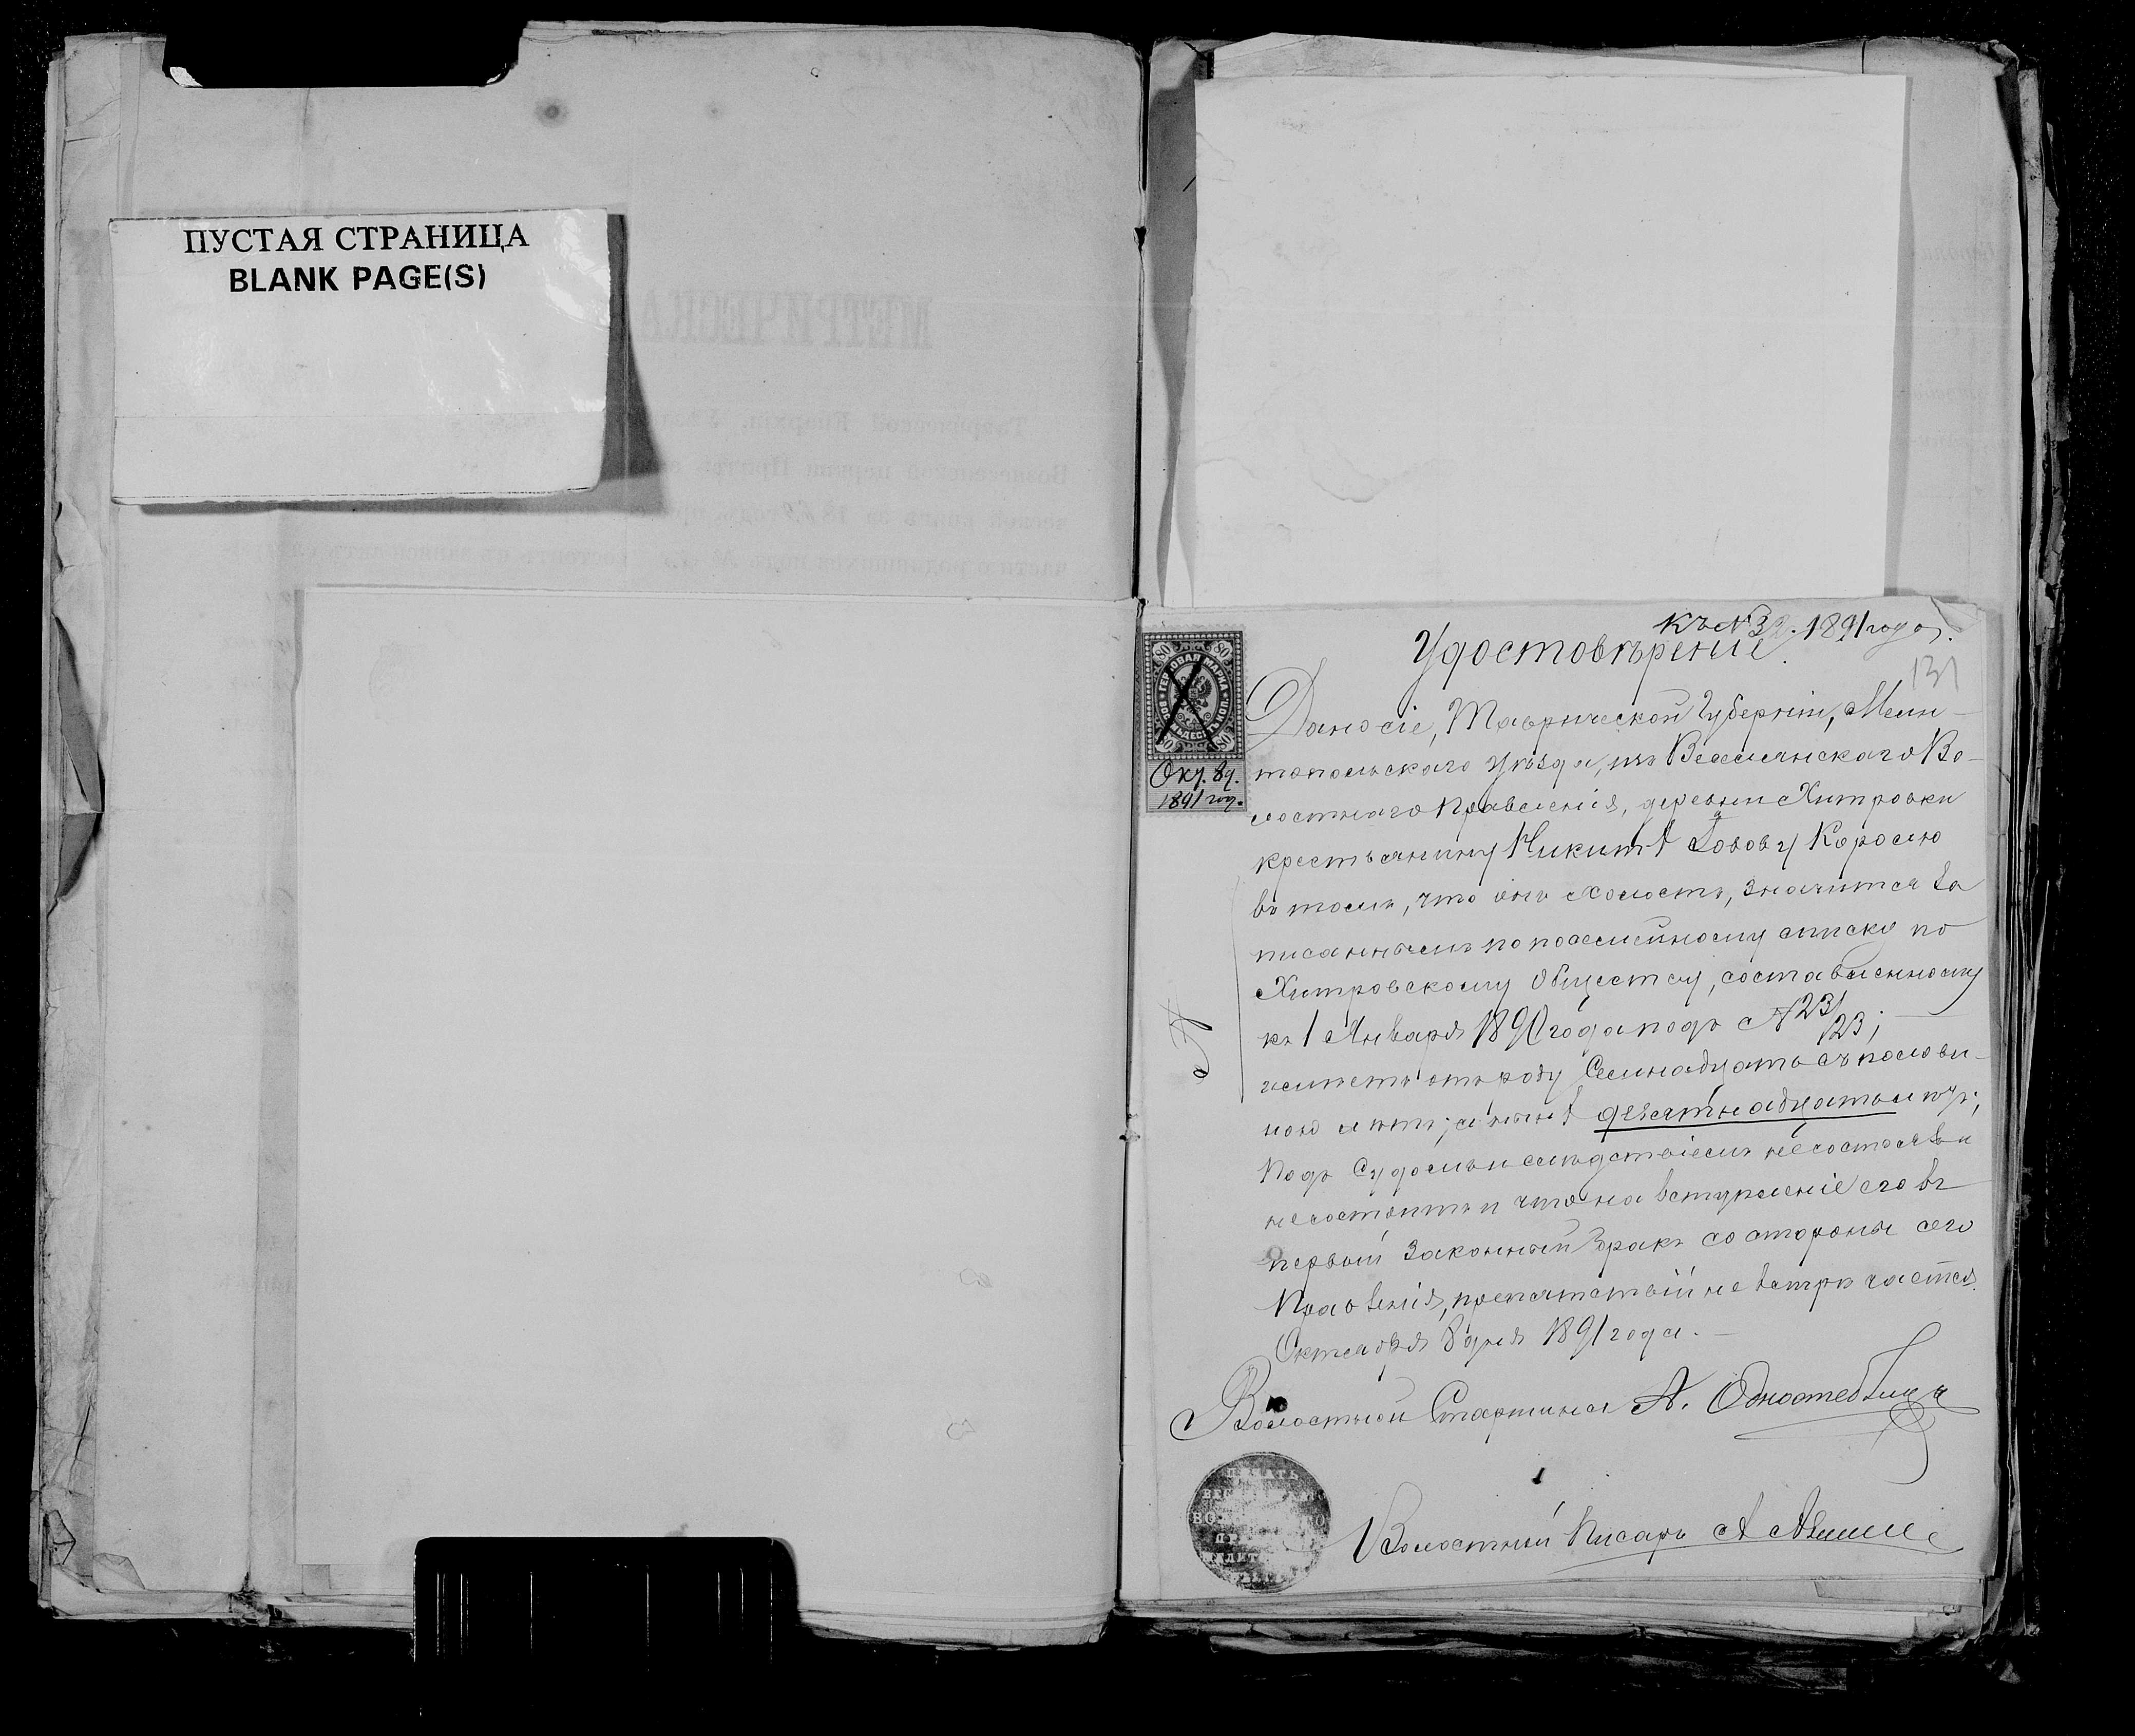 ПУСТАЯ СТРАНИЦА
BLANK PAGE(S)
МЕТРИЧЕСКА
Таврической Епархіи,
Вознесенской церкви Притъ
части о родившихся подъ №
къ № 32. 1891 года.
Удостовѣреніе.
131
80 80
ГЕРБОВАЯ МАРКА
80 80
Окт. 8 д.
1891 год.
Дано сіе, Таврической Губерніи, Мели-
топольскаго Уѣзда, изъ Веселянскаго Во-
лостнаго Правленія, деревни Хитровки
крестьянину Никитѣ Королю
въ томъ, что онъ холостъ, значится за
писаннымъ по посемейному списку по
Хитровскому Обществу, составленному
къ 1 Января 1890 года подъ № 23/23;
имѣетъ отъ роду Семнадцать съ полови-
ною лѣтъ; а нынѣ девятнадцатый
подъ Судомъ и слѣдствіемъ не состоялъ и
не состоитъ и что на вступленіе его въ
первый законный бракъ со стороны сего
Правленія, препятствій не встрѣчается.
Октября 8 дня 1891 года.
Волостной Старшина А.
ПЕЧАТЬ
Волостный Писарь А